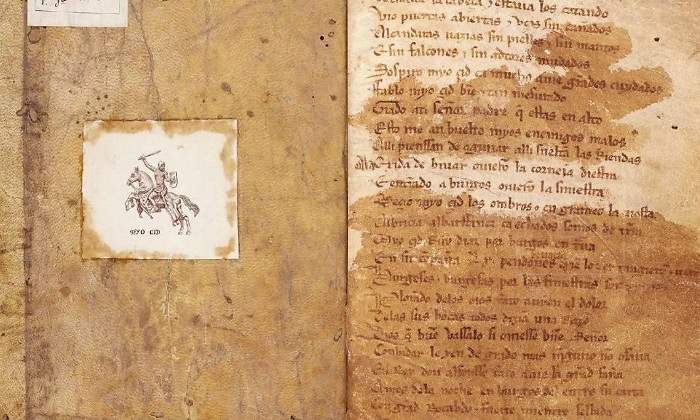 MYO CID
Tornaua la cabeça y estaua los catando
Vio puertas abiertas & vços sin cañados
Alcandaras uazias sin pielles & sin mantos
E sin falcones & sin adtores mudados
Sospiro myo çid ca mucho auie grãdes cuydados
Fablo myo çid bien & tan mesurado
Grado ati señor padre q̃ estas en alto
Esto me an buelto myos enemigos malos
Alli pienssan de aguijar alli sueltã las Riendas
Ala Exida de biuar ouierõ la corneja diestra
E entrãdo a burgos ouierõ la siniestra
Meçio myo çid los ombros & en grameo la tiesta
Albricia albarffanez ca echados somos de trrã
Myo çid Ruy diaz por burgos en traua
En su conpaña Lx pendones
Burgeses & burgesas por las finiestras son
Plorando delos ojos tãto auien el dolor
Delas sus bocas todos dizian una Razõ
Dios q̃ buẽ vassalo si ouiesse buẽ Señor
Conbidar le yen de grado mas ninguno nõ osaua
El Rey don alfonsso tãto auie la grãd saña
Antes dela noche en burgos del entro su carta
Con grãd Recabdo & fuerte mientre sellada